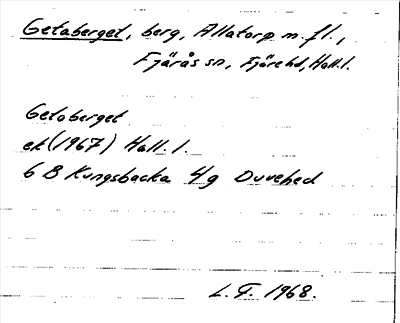 Getaberget, berg, Allatorp m.fl.,
Fjärås sn, Fjäre hd, Hall.l.
Getaberget
ek (1967) Hall. l.
6 B Kungsbacka 4g Duvehed
L.F. 1968.